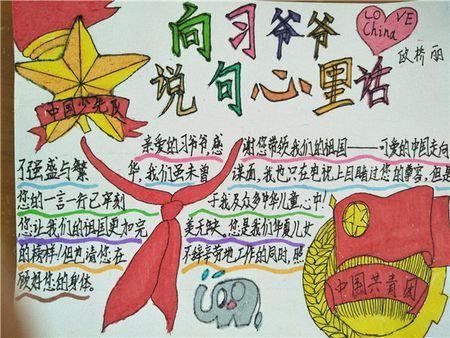 向习爷爷
说句心里话
LOVE
China
欧桥丽
中国少先队
亲爱的习爷爷,感谢您带领我们的祖国——可爱的中国走向
了强盛与繁华,我们虽未曾谋面,我也只在电视上目睹过您的尊容,但是
您的一言一行已牢刻于我及众多中华儿童心中!
您让我们的祖国更加完美无缺。您是我们华夏儿女
的榜样!但也请您在不辞辛劳地工作的同时,照
顾好您的身体。
中国共青团